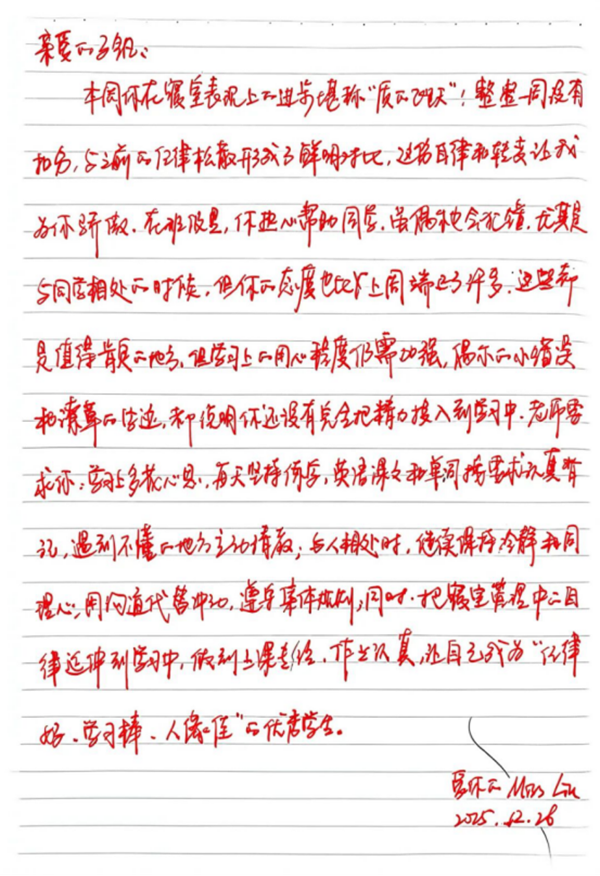 亲爱的子钒：
本周你在寝室表现上的进步堪称“质的飞跃”！整整一周没有
扣分，与之前的纪律松散形成了鲜明对比，这份自律和转变让我
为你骄傲。在班级里，你热心帮助同学，虽偶尔也会犯错，尤其是
与同学相处的时候，但你的态度也比上周端正了许多，这些都
是值得肯定的地方。但学习上的用心程度仍需加强，偶尔的小错误
和潦草的字迹，都说明你还没有完全把精力投入到学习中。老师要
求你：学习上多花心思，每天坚持复习，英语课文和单词按要求认真背
记，遇到不懂的地方主动请教；与人相处时，继续保持冷静和同
理心，用沟通代替冲动，遵守集体规则；同时，把寝室管理中的自
律延伸到学习中，做到上课专注、作业认真，让自己成为“纪律
好、学习棒、人缘佳”的优秀学生。
爱你的 Miss Liu
2025.12.26